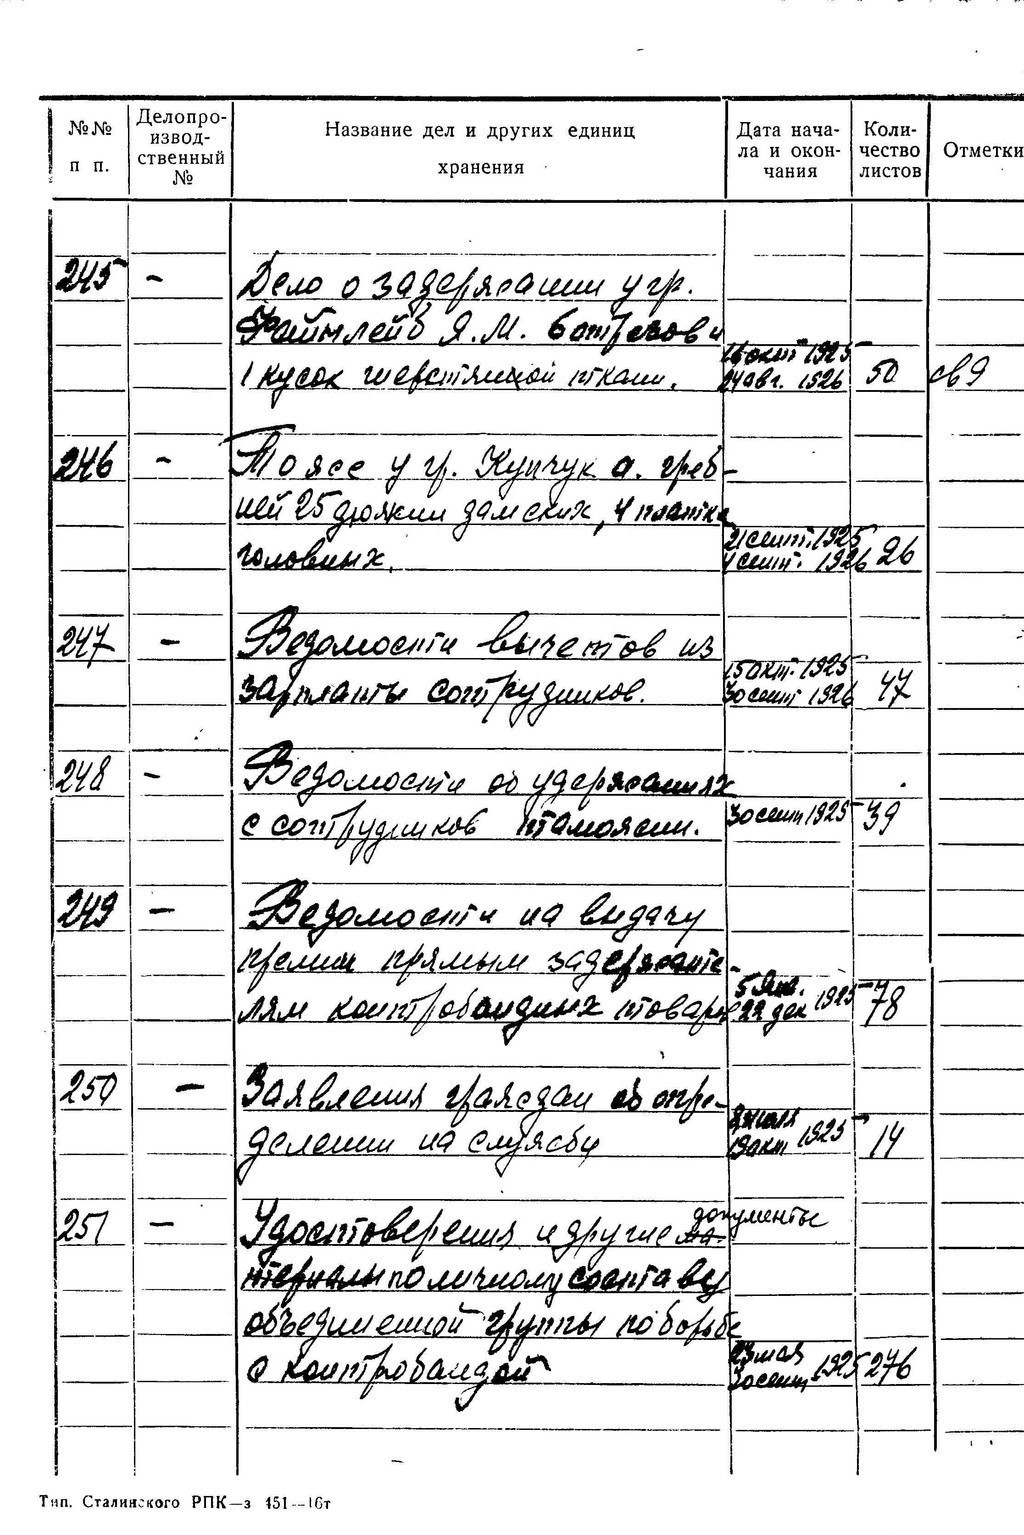 №№ п п. Делопроизводственный № Название дел и других единиц хранения Дата начала и окончания Количество листов Отметки
245 – Дело о задержании у гр.
Файнлейб Я.М. 6 отрезов и
1 кусок шерстяной ткани. 16 окт 1925 24 авг. 1926 50 св 9
246 – То же у гр. Купчук а. греб-
ней 25 дюжин дамских, 4 платка
головных. 21 сент. 1925 4 сент. 1926 26
247 – Ведомости вычетов из
зарплаты сотрудников. 15 окт. 1925 30 сент 1926 47
248 – Ведомости об удержаниях
с сотрудников таможни. 30 сент 1925 39
249 – Ведомости на выдачу
премии прямым задержате-
лям контробандных товаров 5 янв. 22 дек 1925 78
250 – Заявления граждан об опре-
делении на службу 19 окт 1925 14
251 – Удостоверения и другие ма- документы
териалы по личному составу
объединенной группы по борьбе
с контробандой 23 мая 30 сент 1925 276
Тип. Сталинского РПК—з 451—16т